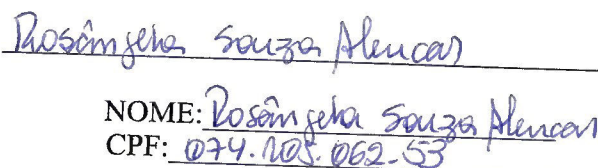 Rosângela Souza Alencar
NOME: Rosângela Souza Alencar
CPF: 074.105.062-53